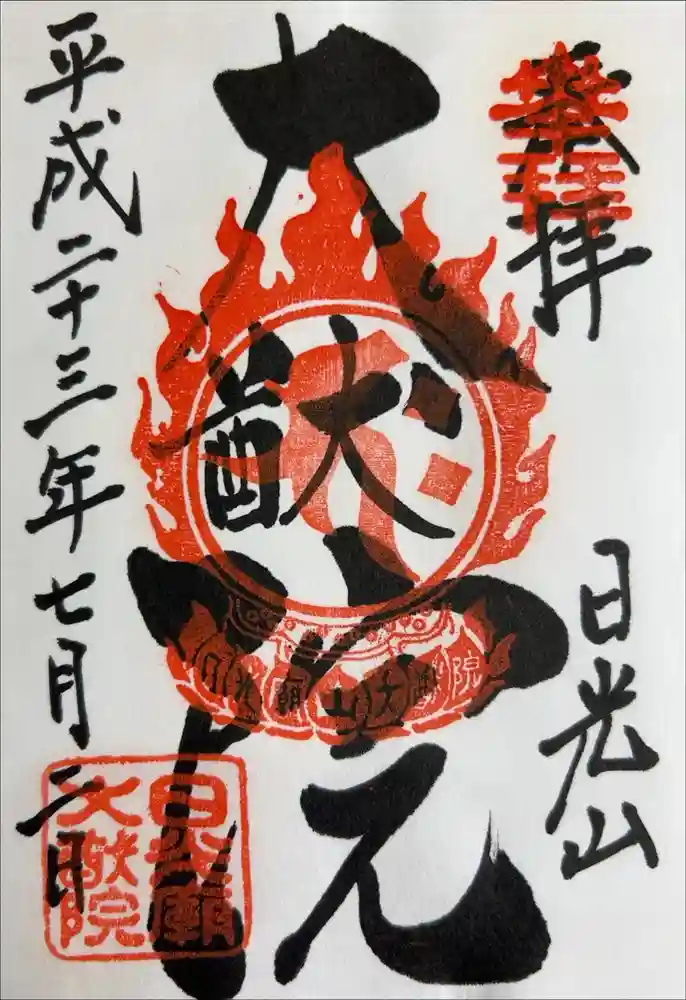 奉拝
日光山
大猷院
日光廟山大猷院
平成二十三年七月二日
日光廟
大猷院